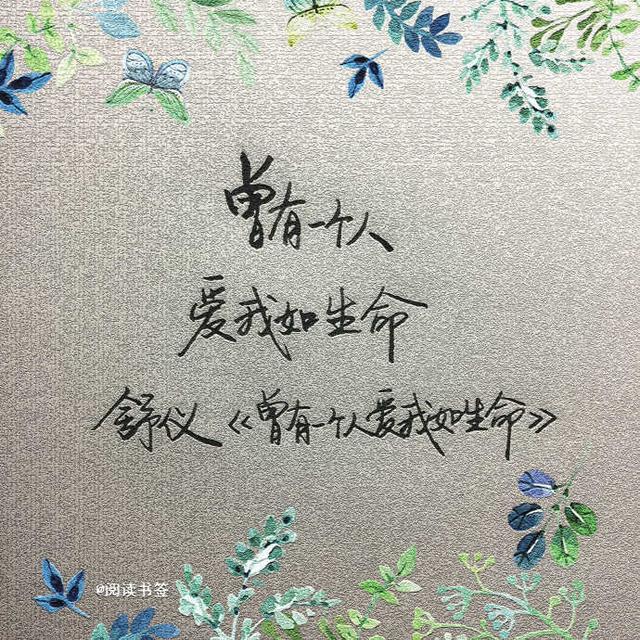 曾有一个人
爱我如生命
舒仪《曾有一个人爱我如生命》
@阅读书签